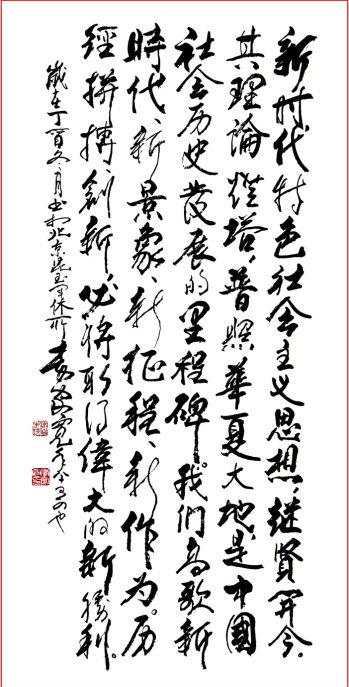 新时代特色社会主义思想、继贤开今。
其理論燈塔、普照華夏大地是中國
社会历史發展的里程碑。我们高歌新
時代、新景象、新征程、新作为。历
經拼搏、創新、必將取得偉大的新勝利。
歲在丁酉冬月书於北京军休所